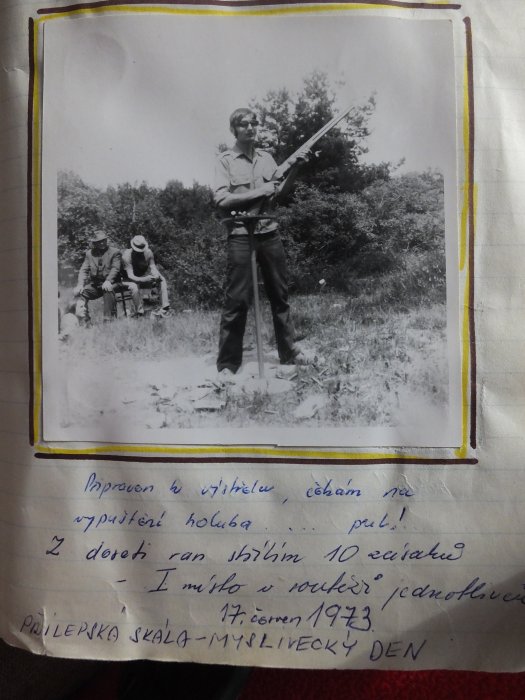 Připraven k výstřelu, čekám na
vypuštění holuba.... pul!
Z deseti ran střílím 10 zásahů
- I místo v soutěži jednotlivců
17. červen 1973
PŘÍLEPSKÁ SKÁLA-MYSLIVECKÝ DEN